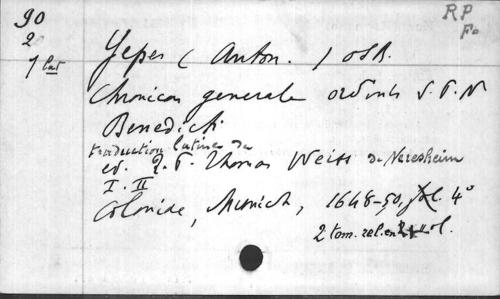 90
2
7 lat
RP
Fo
Yepes ( Anton. ) OSB.
Chronicon generale ordinis S. P. N
Benedicti
traduction latine de
ed. R. P. Thomas Weiss de Neresheim
I. II
Coloniae, Munich, 1648-50, fol. 4°
2 tom. rel. en vol.